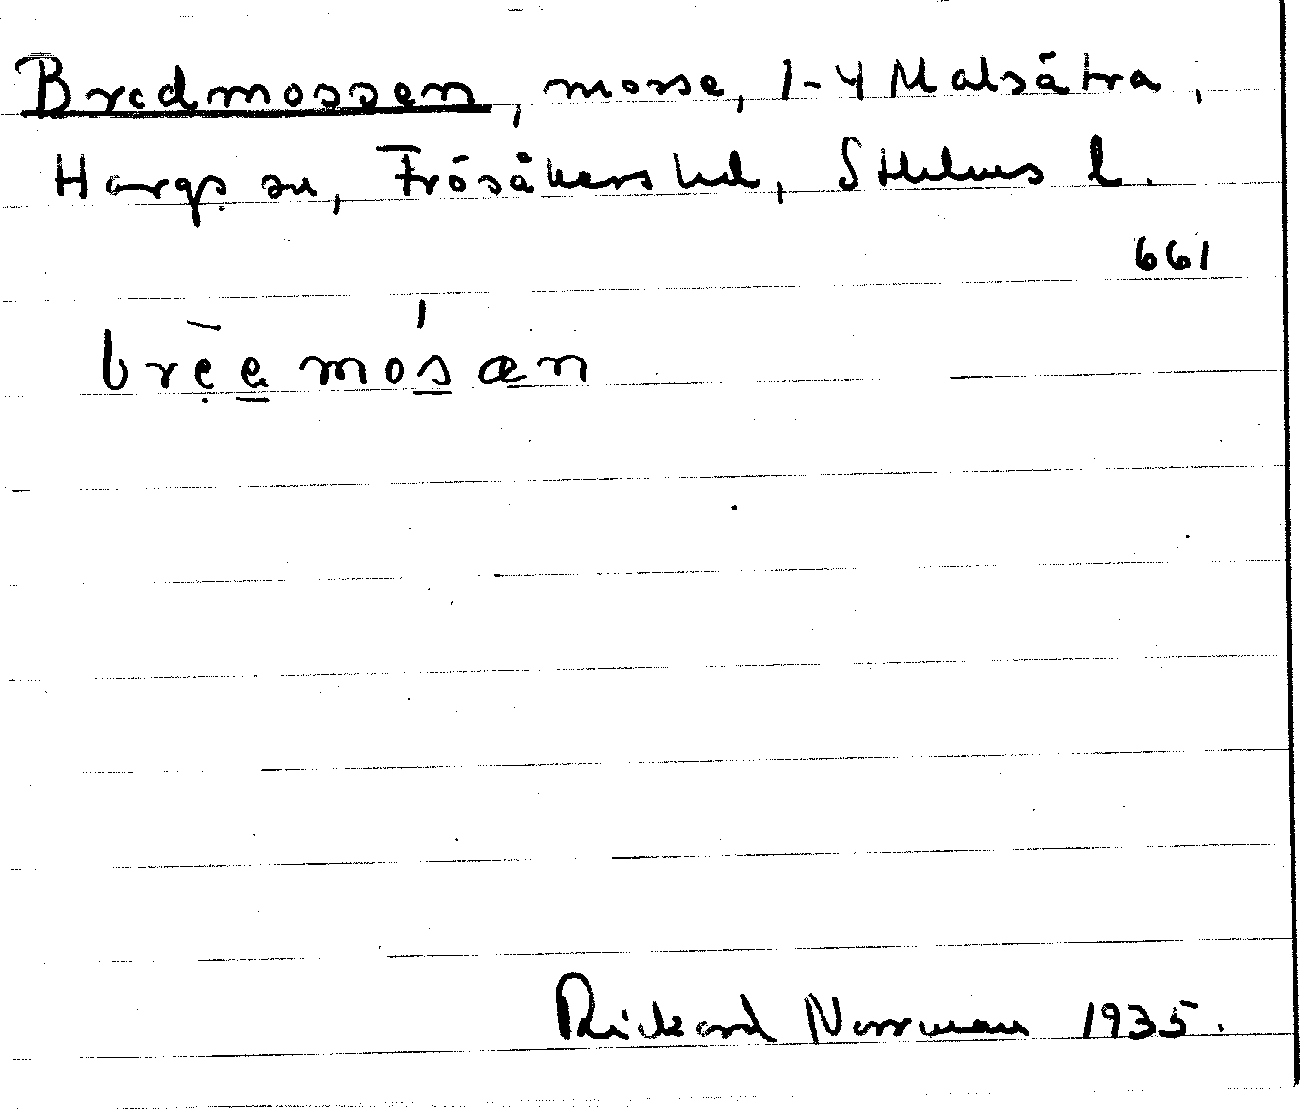 Bredmossen, mosse, 1-4 Malsätra,
Hargs sn, Frösåkers hd, Sthlms l.
661
brẹ̄e̲mós̲æn
Rickard Norrman 1935.